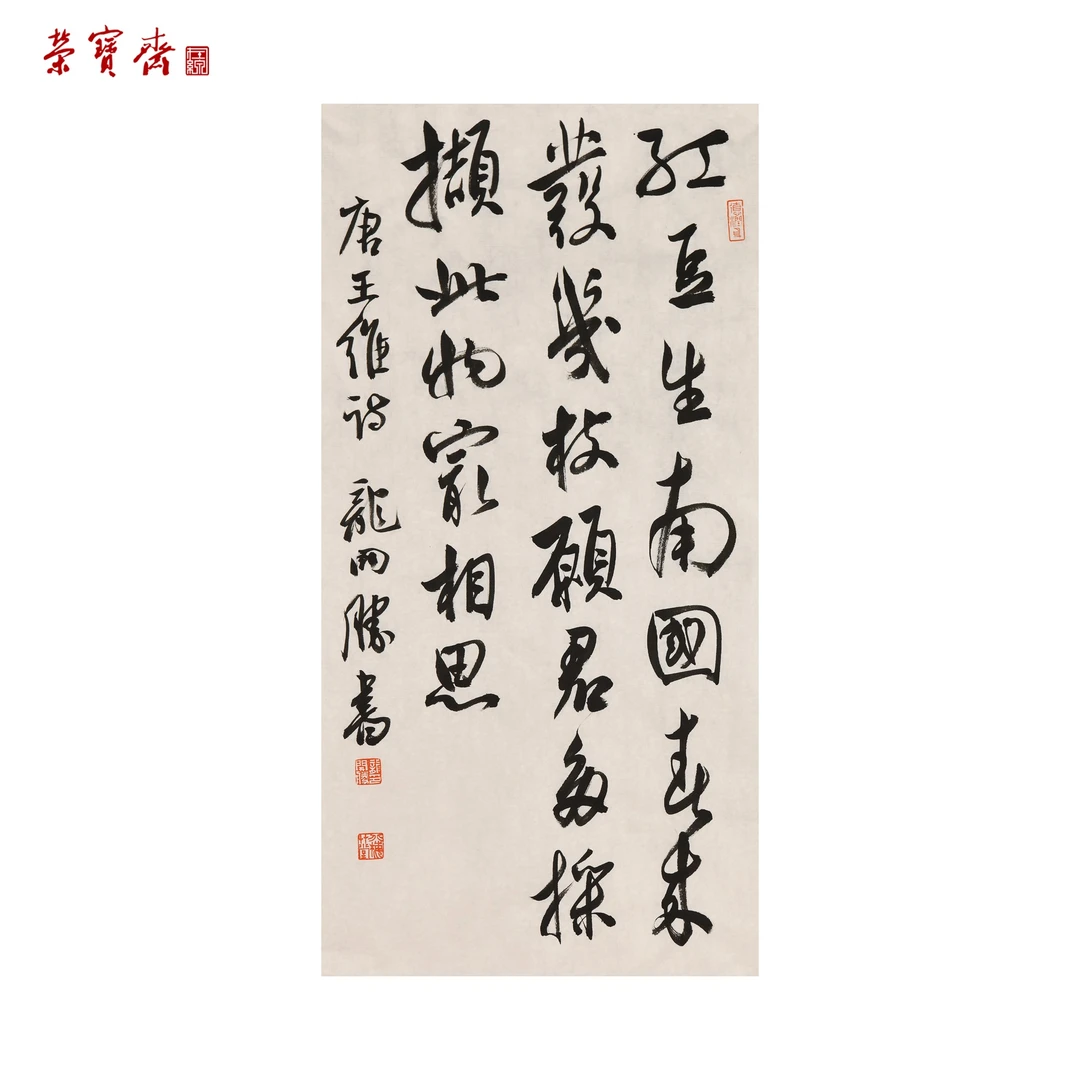 榮寶齋
紅豆生南國春來
發幾枝願君多採
擷此物最相思
唐王維詩 龍開勝書